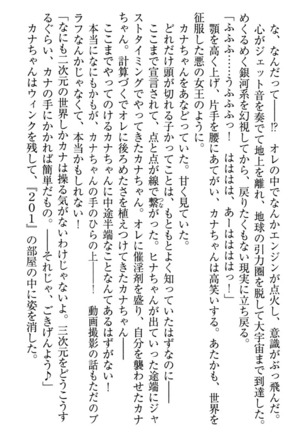 な、なんだって――!? オレの中でなんかエンジンが点火し、意識がぶっ飛んだ。
心がジェット音を奏でて地上を離れ、地球の引力圏を脱して大宇宙まで到達した。
めくるめく銀河系を幻視してから、戻りたくもない現実に立ち戻る。
「ふふふ……うふふふっ! はははは、あーははははっ!」
顎を高く上げ、片手を腰にあてがい、カナちゃんは高笑いする。あたかも、世界を
征服した悪の女王のように。
カナちゃんをあなどっていた。甘く見ていた。
どれだけ頭が切れる子かってことは、もともとよく知っていたはずなのに――
ここまで宣言されて、点と点が線で繋がった。ヒナちゃんが出ていった途端にジャ
ストタイミングでやってきたカナちゃん。オレに催淫剤を盛り、自分を襲わせたカナ
ちゃん。計算づくでオレに後ろめたさを植えつけてきたカナちゃん――
ここまでやってのけるカナちゃんに中途半端なことなんてあるはずがない!
本当になにもかもが、カナちゃんの手のひらの上――! 動画撮影の話もただのブ
ラフなんかじゃなくて、本当かもしれない!
「なにも二次元の世界しかカナは操る気がないわけじゃないよ。三次元をどうこうす
るぐらい、カナの手にかかれば簡単だもの。――それじゃ、ごきげんよう♪」
カナちゃんはウィンクを残して、『201』の部屋の中に姿を消した。